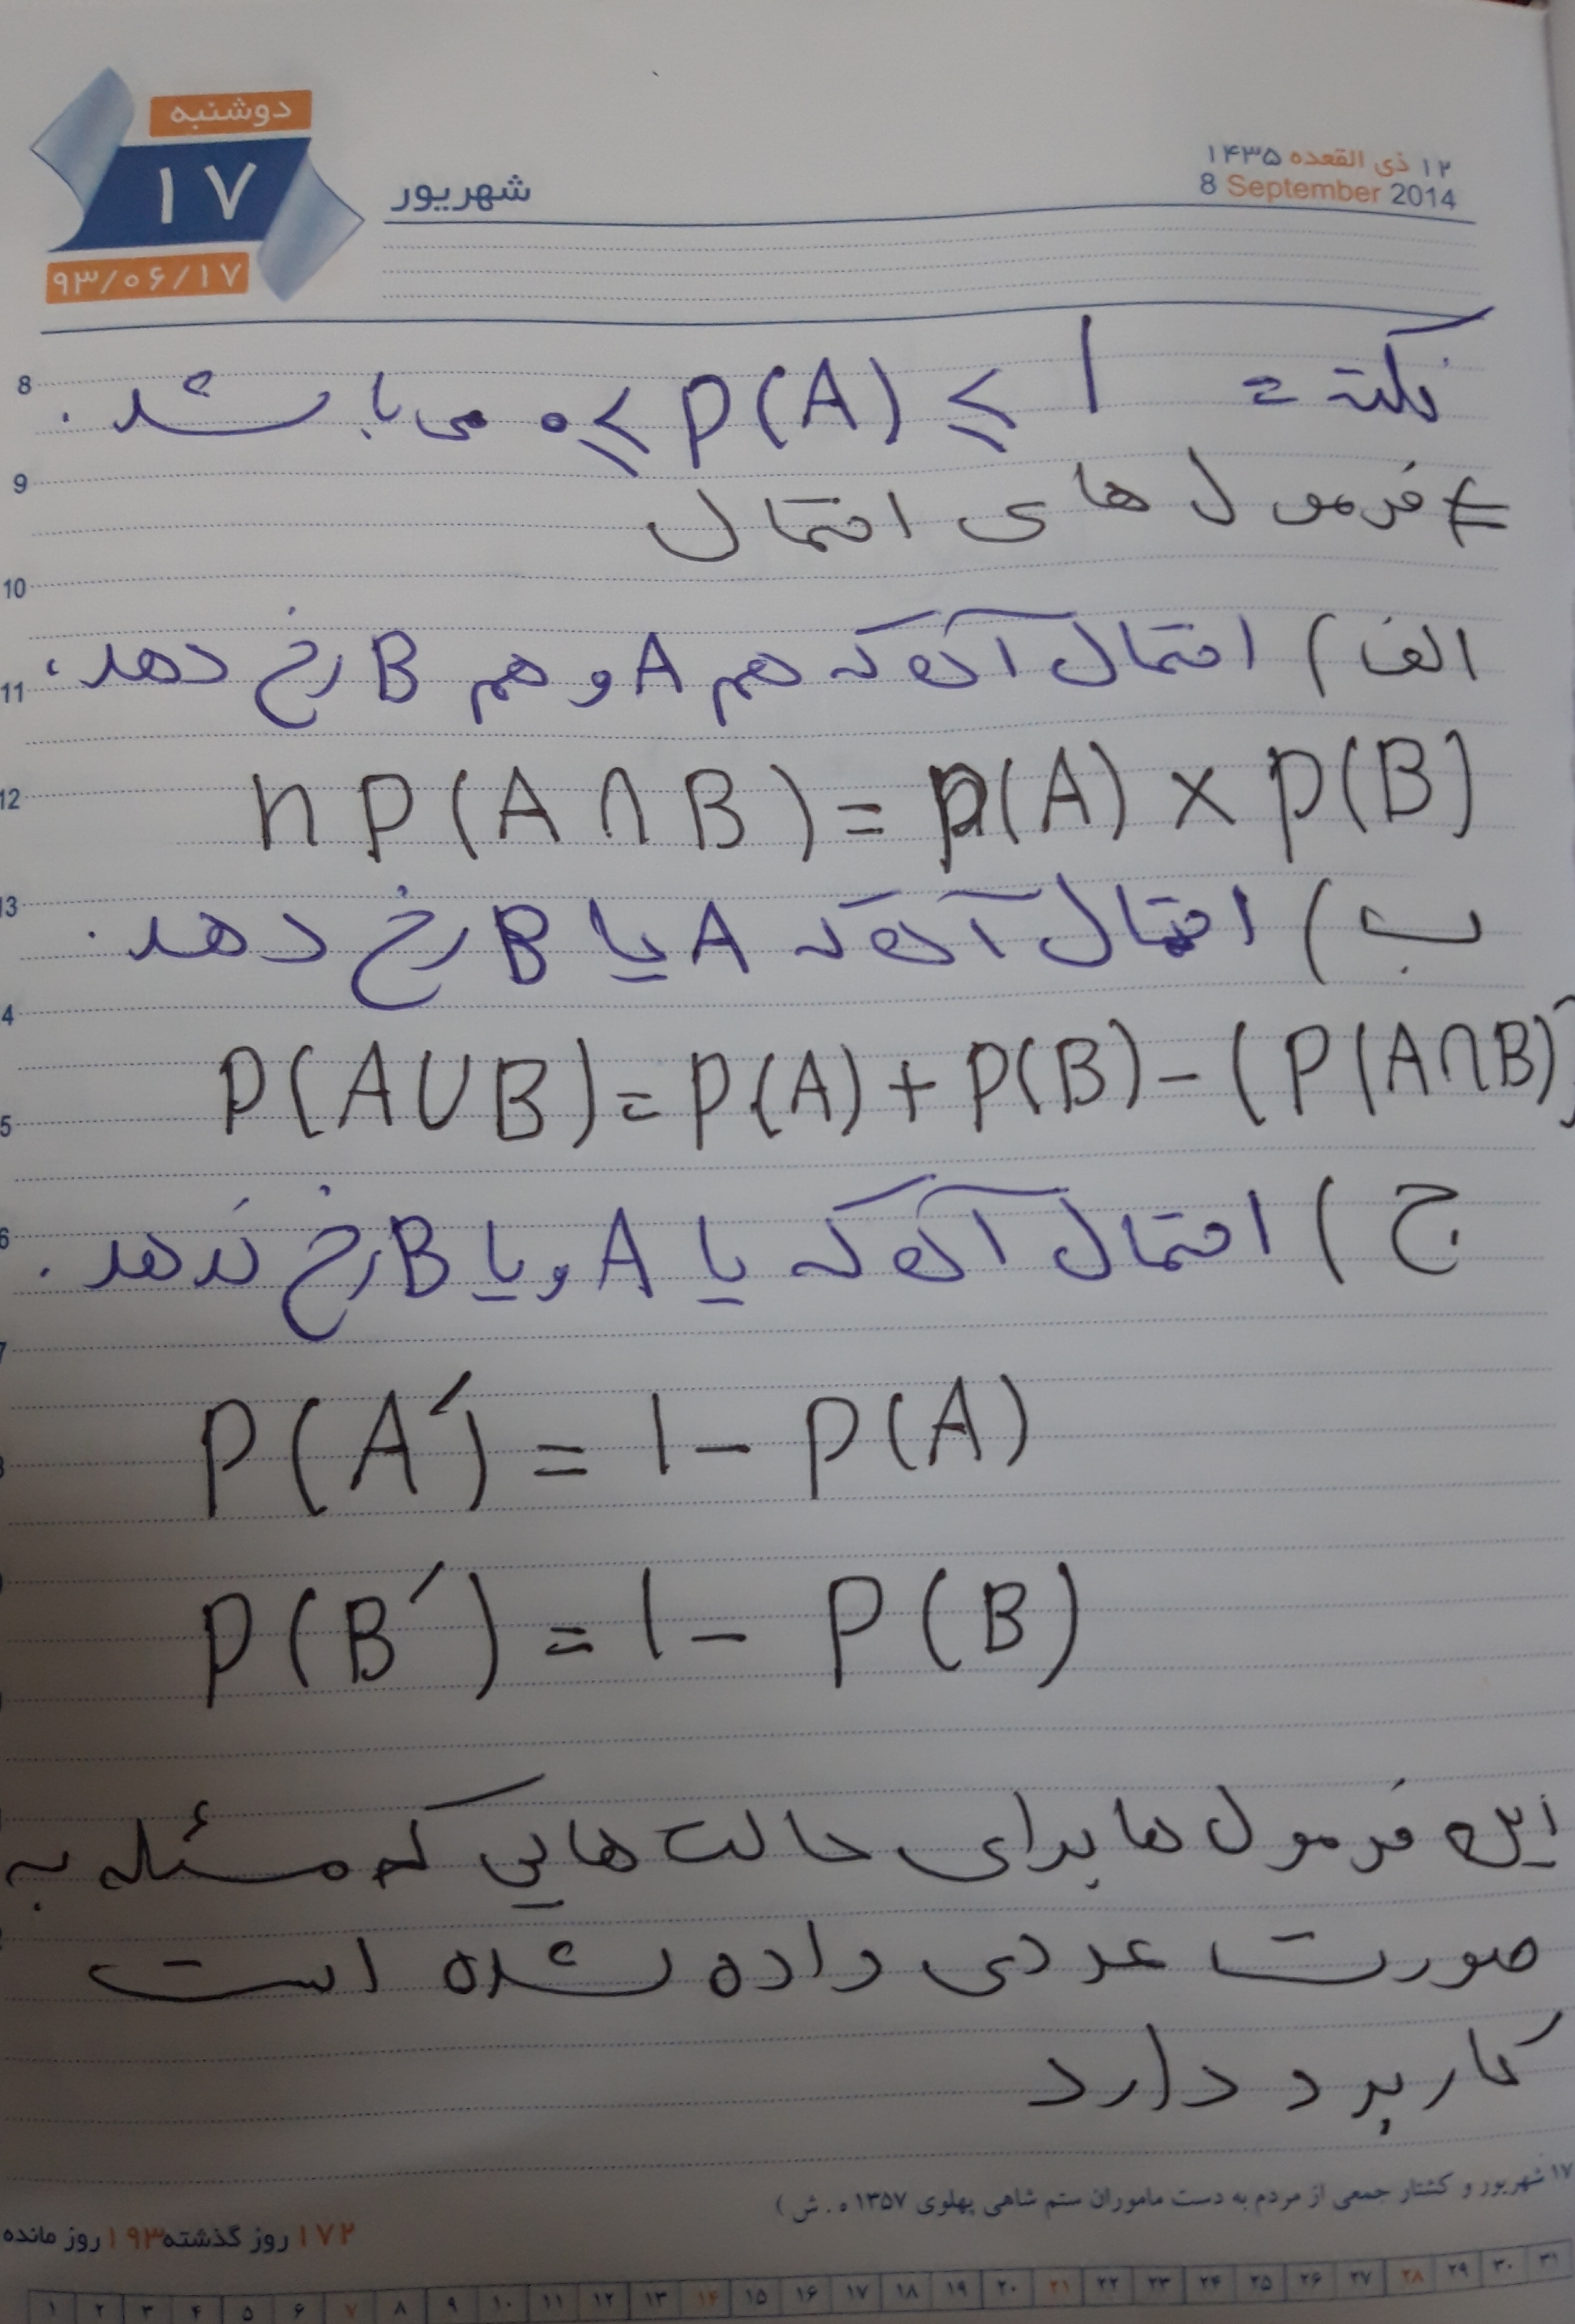 دوشنبه
۱۷
۹۳/۰۶/۱۷
شهریور
۱۲ ذی القعده ۱۴۳۵
8 September 2014
نکته = ۰ ≤ P(A) ≤ 1 می باشد.
# فرمول های احتمال
الف) احتمال آن که هم A و هم B رخ دهد،
n P(A ∩ B) = p(A) × p(B)
ب) احتمال آن که A یا B رخ دهد.
P(A∪B) = p(A) + p(B) - (P(A∩B))
ج) احتمال آن که یا A و یا B رخ ندهد.
P(A′) = 1 - P(A)
P(B′) = 1 - P(B)
این فرمول ها برای حالت هایی که مسئله به
صورت عددی داده شده است
کاربرد دارد
۱۷ شهریور و کشتار جمعی از مردم به دست ماموران ستم شاهی پهلوی ۱۳۵۷ ه.ش)
۱۷۲ روز گذشته ۱۹۳ روز مانده
8
9
10
11
12
13
4
5
6
7
۱ ۲ ۳ ۴ ۵ ۶ ۷ ۸ ۹ ۱۰ ۱۱ ۱۲ ۱۳ ۱۴ ۱۵ ۱۶ ۱۷ ۱۸ ۱۹ ۲۰ ۲۱ ۲۲ ۲۳ ۲۴ ۲۵ ۲۶ ۲۷ ۲۸ ۲۹ ۳۰ ۳۱